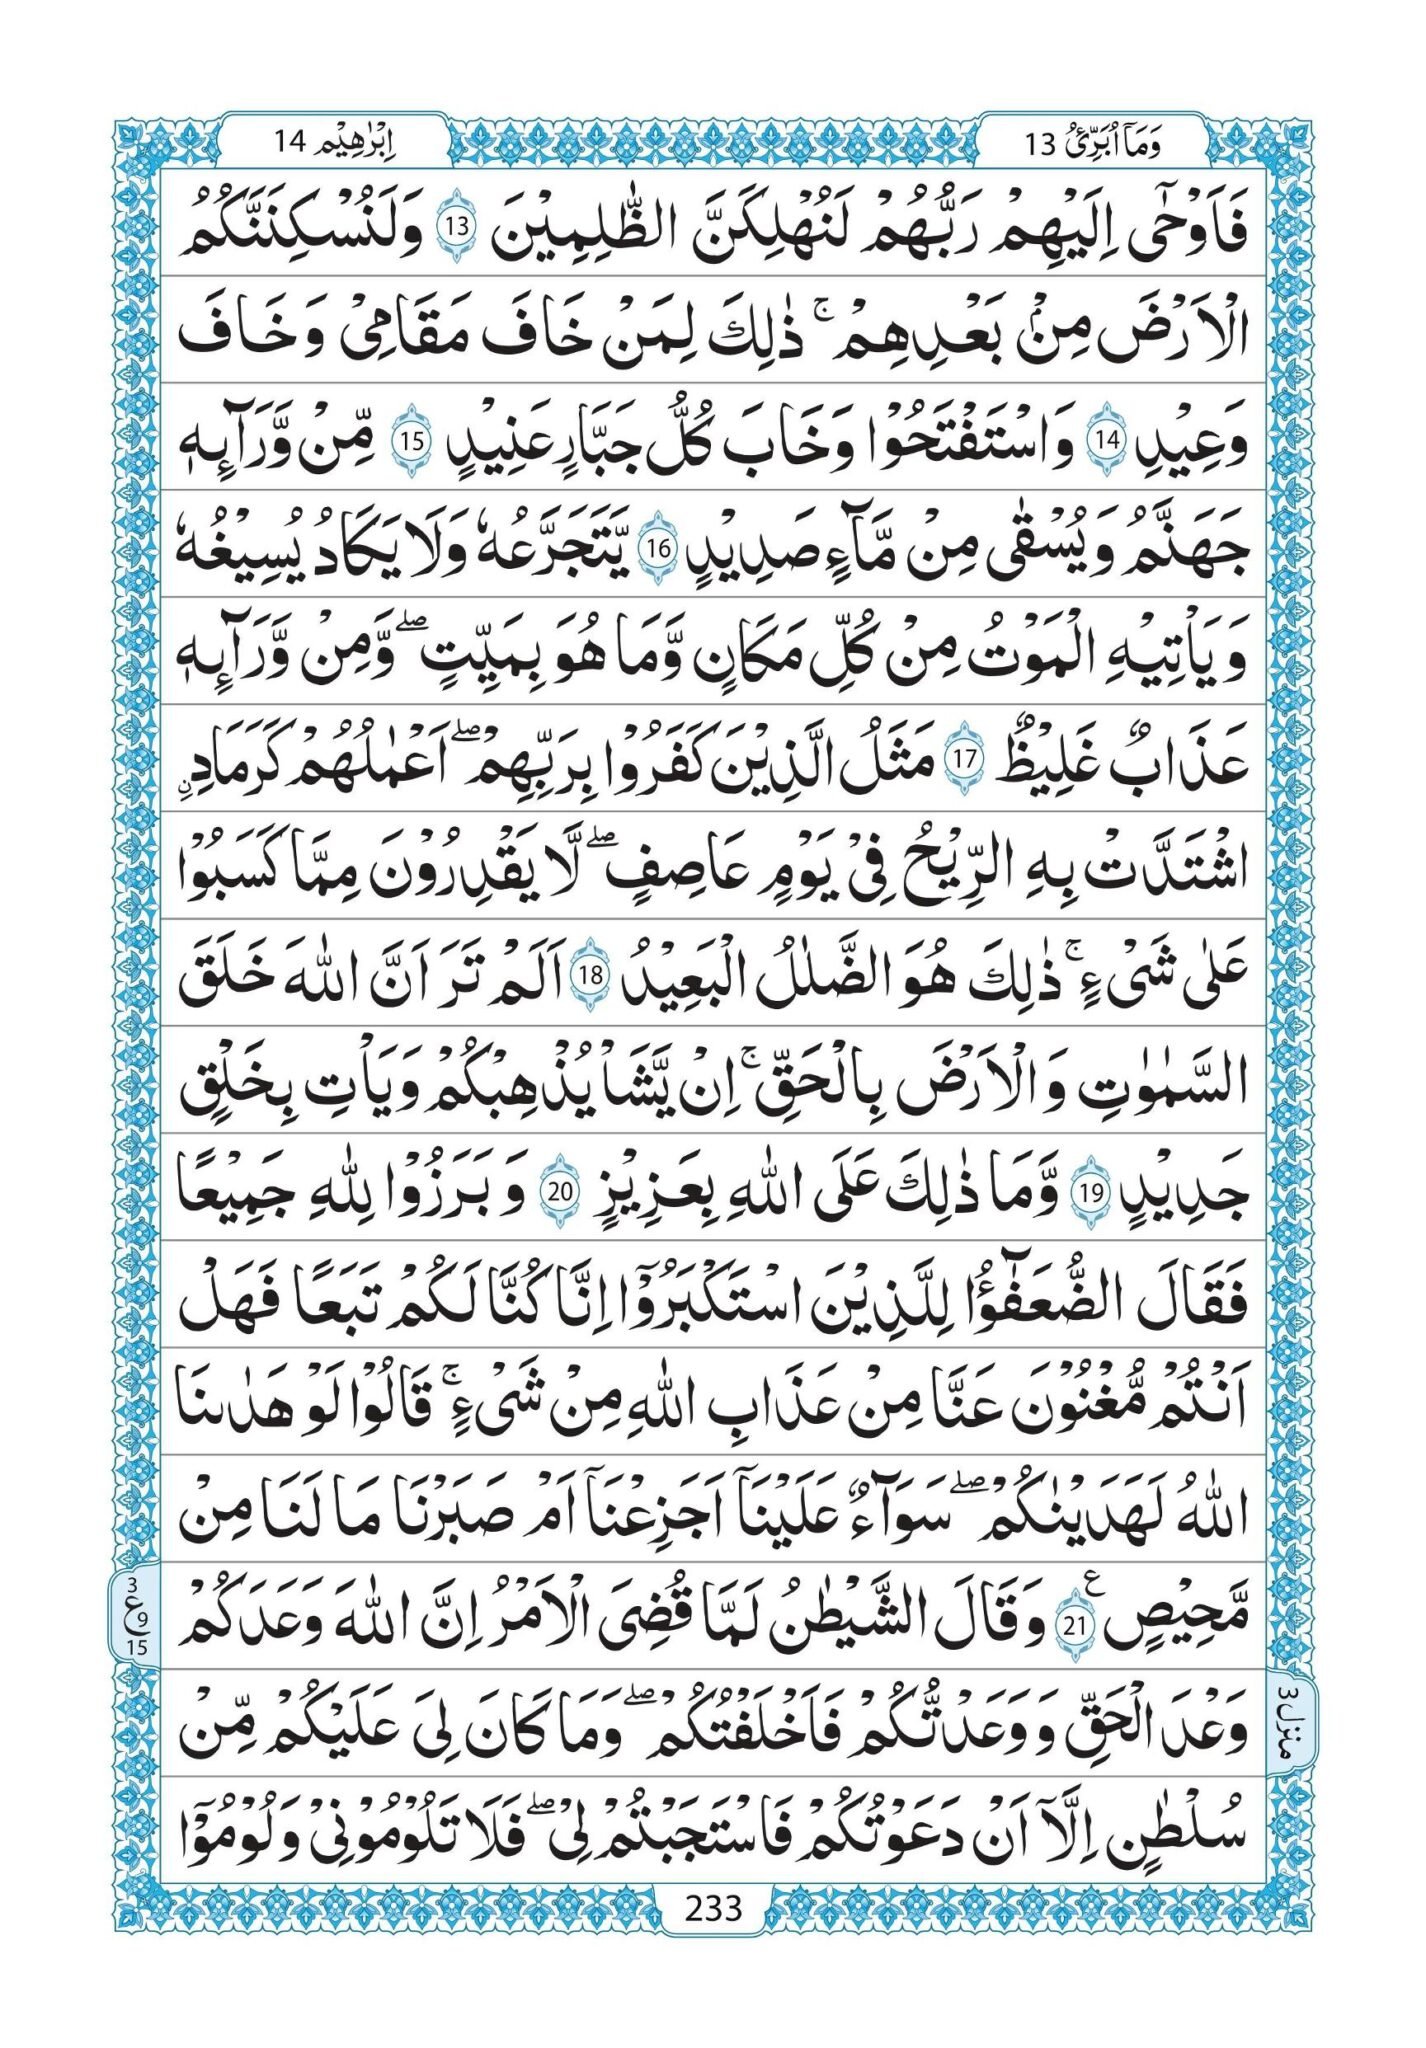 وَمَآ اُبَرِّئُ 13
اِبْرٰهِيْم 14
فَاَوْحٰٓى اِلَيْهِمْ رَبُّهُمْ لَنُهْلِكَنَّ الظّٰلِمِيْنَ 13 وَلَنُسْكِنَنَّكُمُ
الْاَرْضَ مِنْۢ بَعْدِهِمْ ۚ ذٰلِكَ لِمَنْ خَافَ مَقَامِيْ وَخَافَ
وَعِيْدِ 14 وَاسْتَفْتَحُوْا وَخَابَ كُلُّ جَبَّارٍ عَنِيْدٍ 15 مِّنْ وَّرَآئِهٖ
جَهَنَّمُ وَيُسْقٰى مِنْ مَّآءٍ صَدِيْدٍ 16 يَّتَجَرَّعُهٗ وَلَا يَكَادُ يُسِيْغُهٗ
وَيَاْتِيْهِ الْمَوْتُ مِنْ كُلِّ مَكَانٍ وَّمَا هُوَ بِمَيِّتٍ ۖ وَّمِنْ وَّرَآئِهٖ
عَذَابٌ غَلِيْظٌ 17 مَثَلُ الَّذِيْنَ كَفَرُوْا بِرَبِّهِمْ ۖ اَعْمٰلُهُمْ كَرَمَادِ ۨ
اشْتَدَّتْ بِهِ الرِّيْحُ فِيْ يَوْمٍ عَاصِفٍ ۖ لَّا يَقْدِرُوْنَ مِمَّا كَسَبُوْا
عَلٰى شَيْءٍ ۚ ذٰلِكَ هُوَ الضَّلٰلُ الْبَعِيْدُ 18 اَلَمْ تَرَ اَنَّ اللّٰهَ خَلَقَ
السَّمٰوٰتِ وَالْاَرْضَ بِالْحَقِّ ۚ اِنْ يَّشَاْ يُذْهِبْكُمْ وَيَاْتِ بِخَلْقٍ
جَدِيْدٍ 19 وَّمَا ذٰلِكَ عَلَى اللّٰهِ بِعَزِيْزٍ 20 وَبَرَزُوْا لِلّٰهِ جَمِيْعًا
فَقَالَ الضُّعَفٰٓؤُا لِلَّذِيْنَ اسْتَكْبَرُوْٓا اِنَّا كُنَّا لَكُمْ تَبَعًا فَهَلْ
اَنْتُمْ مُّغْنُوْنَ عَنَّا مِنْ عَذَابِ اللّٰهِ مِنْ شَيْءٍ ۚ قَالُوْا لَوْ هَدٰىنَا
اللّٰهُ لَهَدَيْنٰكُمْ ۖ سَوَآءٌ عَلَيْنَآ اَجَزِعْنَآ اَمْ صَبَرْنَا مَا لَنَا مِنْ
مَّحِيْصٍ 21 ع وَقَالَ الشَّيْطٰنُ لَمَّا قُضِيَ الْاَمْرُ اِنَّ اللّٰهَ وَعَدَكُمْ
3
ع 9
15
وَعْدَ الْحَقِّ وَوَعَدْتُّكُمْ فَاَخْلَفْتُكُمْ ۖ وَمَا كَانَ لِيَ عَلَيْكُمْ مِّنْ
منزل 3
سُلْطٰنٍ اِلَّآ اَنْ دَعَوْتُكُمْ فَاسْتَجَبْتُمْ لِيْ ۖ فَلَا تَلُوْمُوْنِيْ وَلُوْمُوْٓا
233